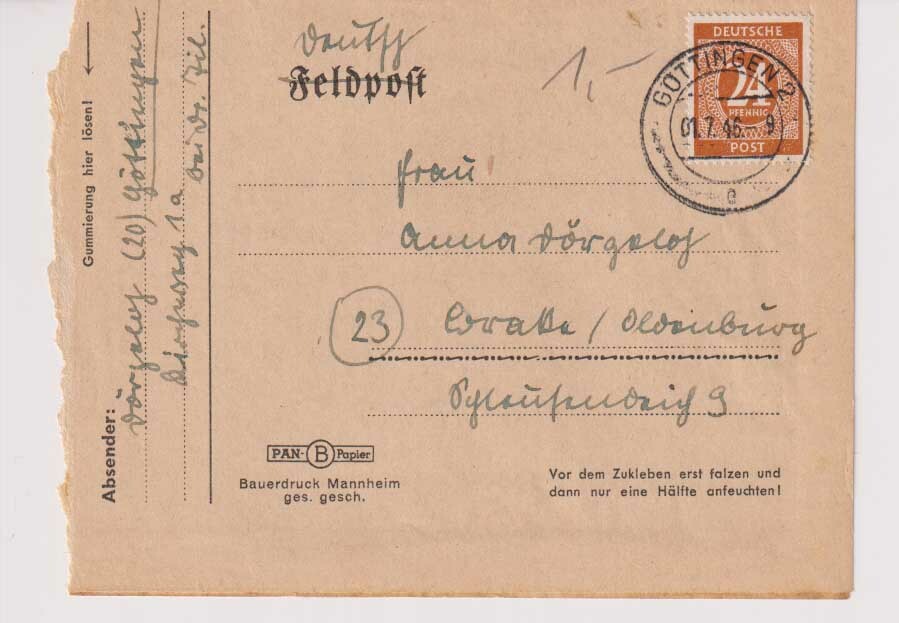 Deutsch
Feldpost
1,-
DEUTSCHE
24
PFENNIG
POST
GÖTTINGEN 2
01.7.46.-9
e
Frau
Anna Dörgeloh
(23) Brake / Oldenburg
Schleusendeich 9
PAN- B Papier
Bauerdruck Mannheim
ges. gesch.
Vor dem Zukleben erst falzen und
dann nur eine Hälfte anfeuchten!
Gummierung hier lösen!
Absender:
Dörgeloh (20) Göttingen
1a bei Dr. Til.